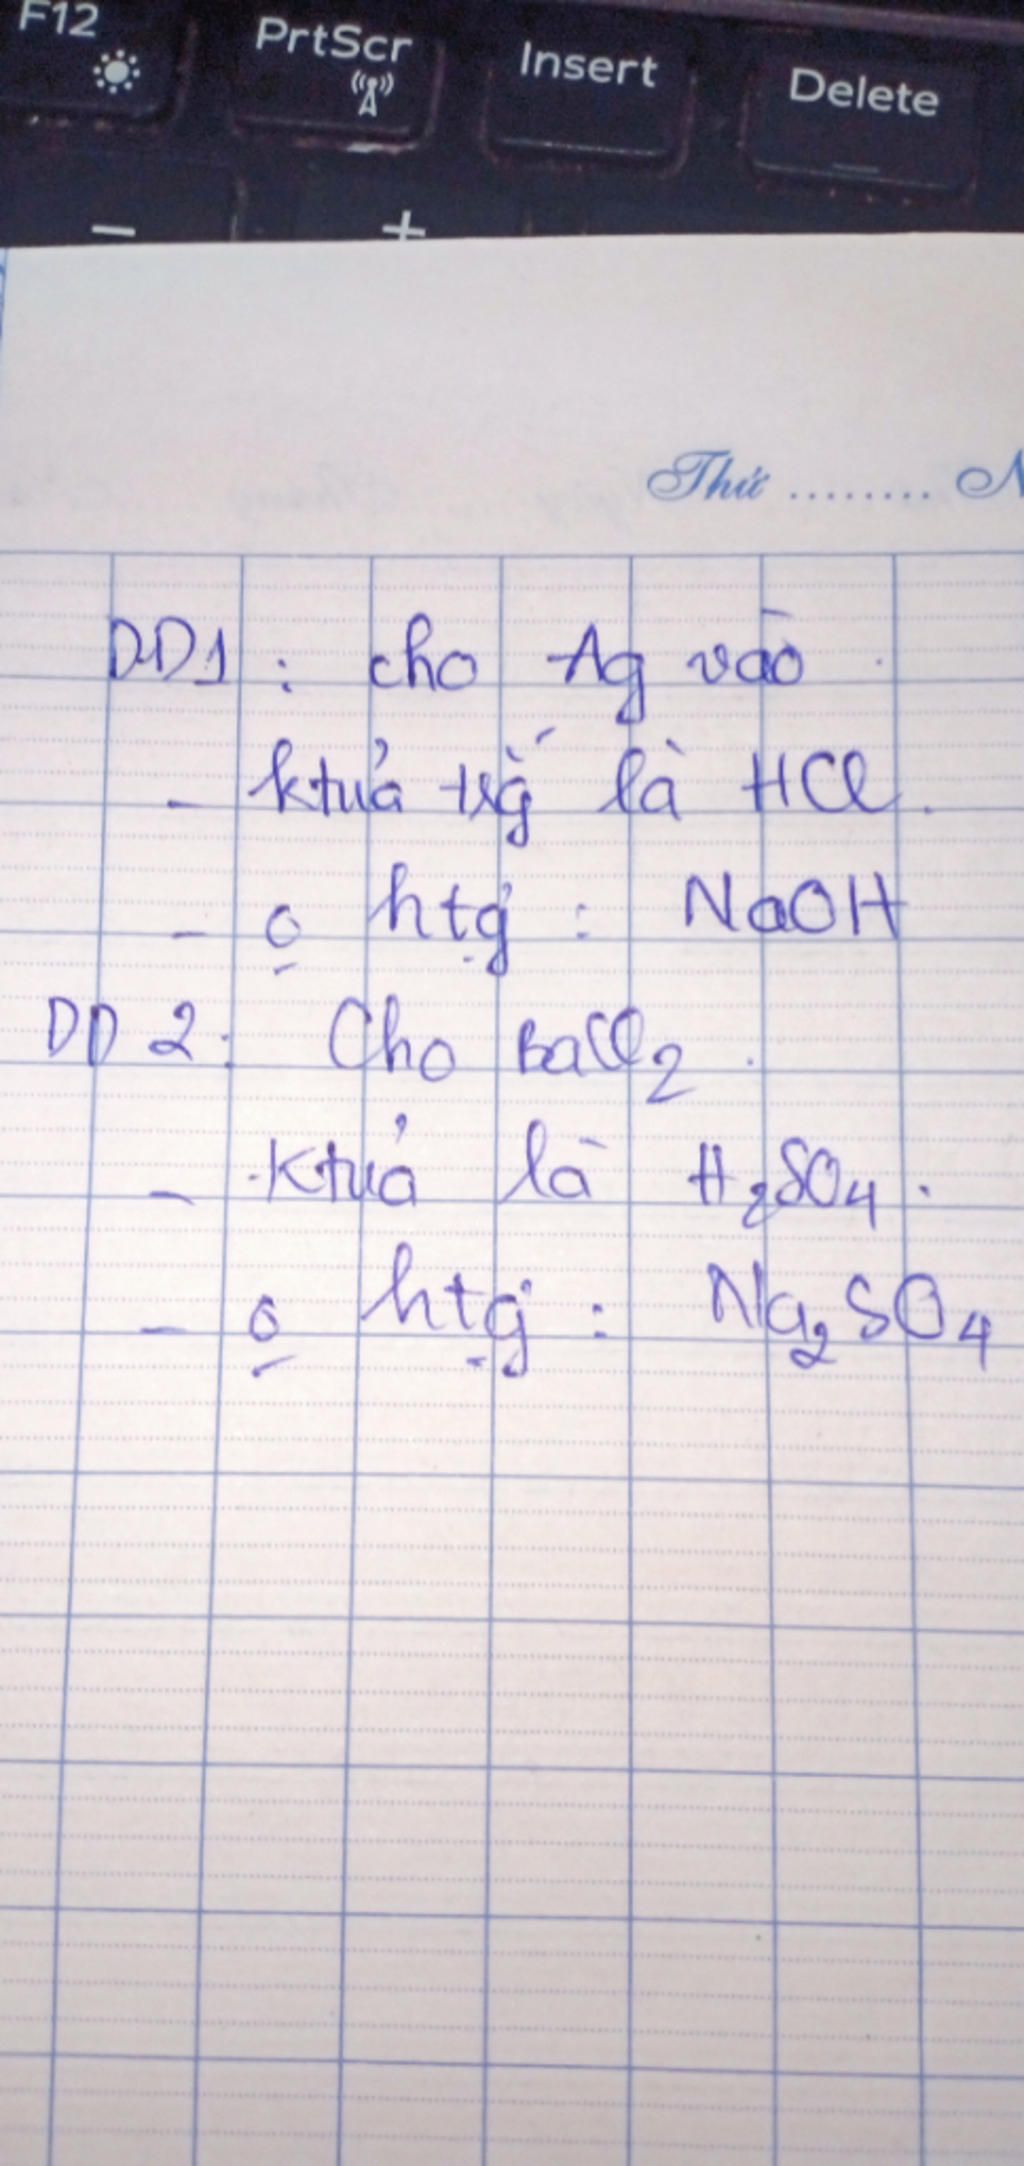 F12
PrtScr
Insert
Delete
− +
Thứ ........ N
DD1 : cho Ag vào
- ktủa trắg là HCl.
- 0 htg : NaOH
DD 2: Cho BaCl2
- Ktủa là H2SO4.
- 0 htg : Na2SO4